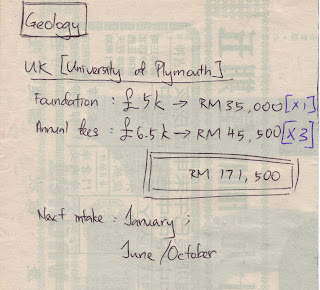 Geology
UK [University of Plymouth]
Foundation : £5k → RM 35,000 [x1]
Annual fees : £6.5k → RM 45,500 [x3]
RM 171,500
Next intake : January ;
June/October